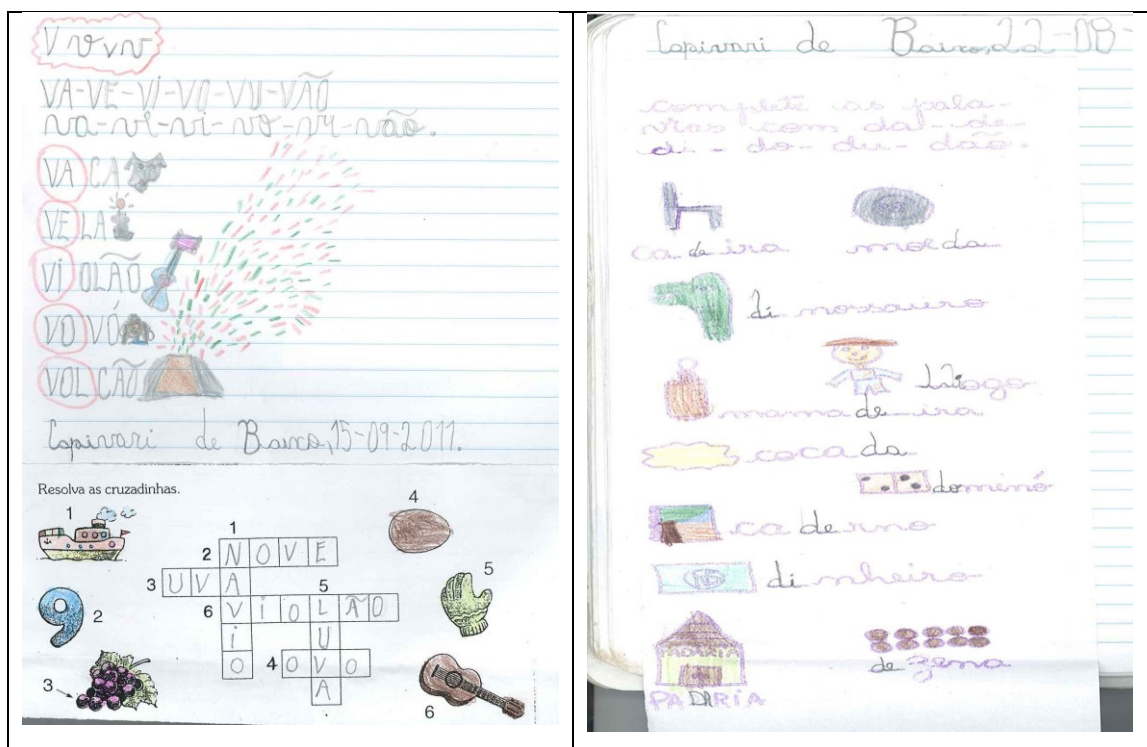 V v v v
VA-VE-Vi-VO-VU-VÃO
va-ve-vi-vo-vu-vão.
VACA
VELA
Vi OLÃO
VOVÓ
VOLCÃO
Capivari de Baixo, 15-09-2011.
Resolva as cruzadinhas.
1
4
1
2 NOVE
3 UVA
5
5
6 ViOLÃO
2
4 OVO
3
6
NAViO
LUVA
Capivari de Baixo, 22-08-
complete as pala-
vras com da-de-
di-do-du-dão.
ca de ira
moe da
di nossauro
Diogo
mama de ira
coca da
dominó
ca derno
di nheiro
de zena
PADARIA